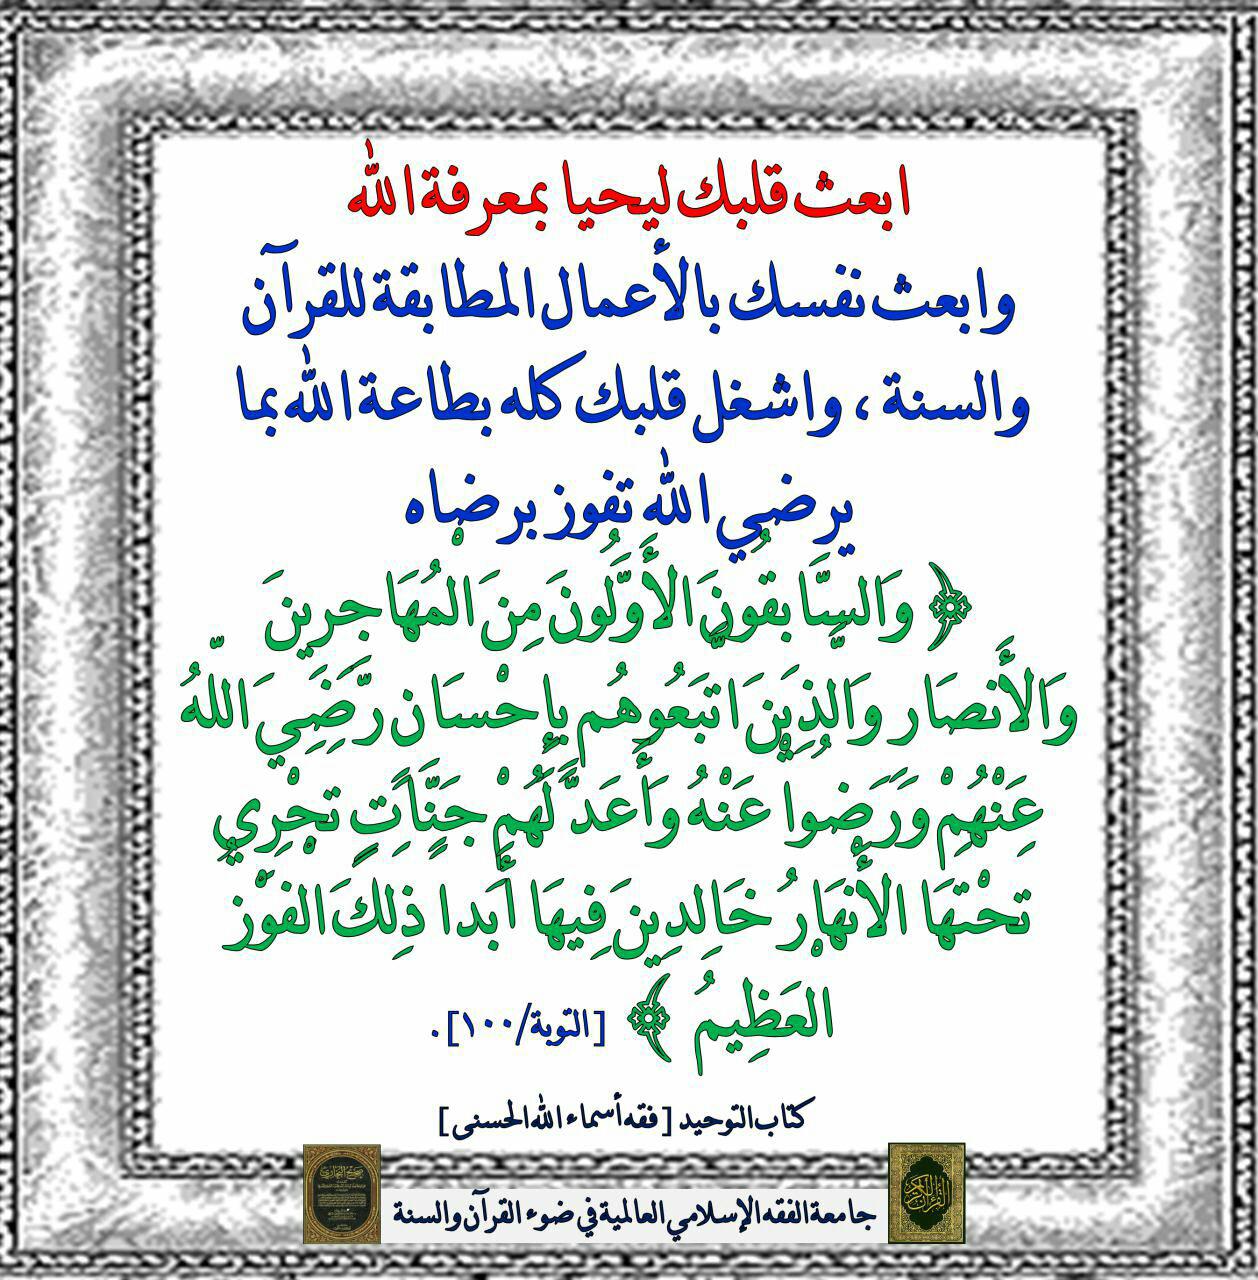 ابعث قلبك ليحيا بمعرفة الله
وابعث نفسك بالأعمال المطابقة للقرآن
والسنة ، واشغل قلبك كله بطاعة الله بما
يرضي الله تفوز برضاه
﴿ وَالسَّابِقُونَ الأَوَّلُونَ مِنَ الْمُهَاجِرِينَ
وَالأَنصَارِ وَالَّذِينَ اتَّبَعُوهُم بِإِحْسَانٍ رَّضِيَ اللّهُ
عَنْهُمْ وَرَضُوا عَنْهُ وَأَعَدَّ لَهُمْ جَنَّاتٍ تَجْرِي
تَحْتَهَا الأَنْهَارُ خَالِدِينَ فِيهَا أَبَدا ذَلِكَ الفَوْزُ
العَظِيمُ ﴾ [التوبة/١٠٠].
كتاب التوحيد [فقه أسماء الله الحسنى]
جامعة الفقه الإسلامي العالمية في ضوء القرآن والسنة
صحيح البخاري
القرآن الكريم